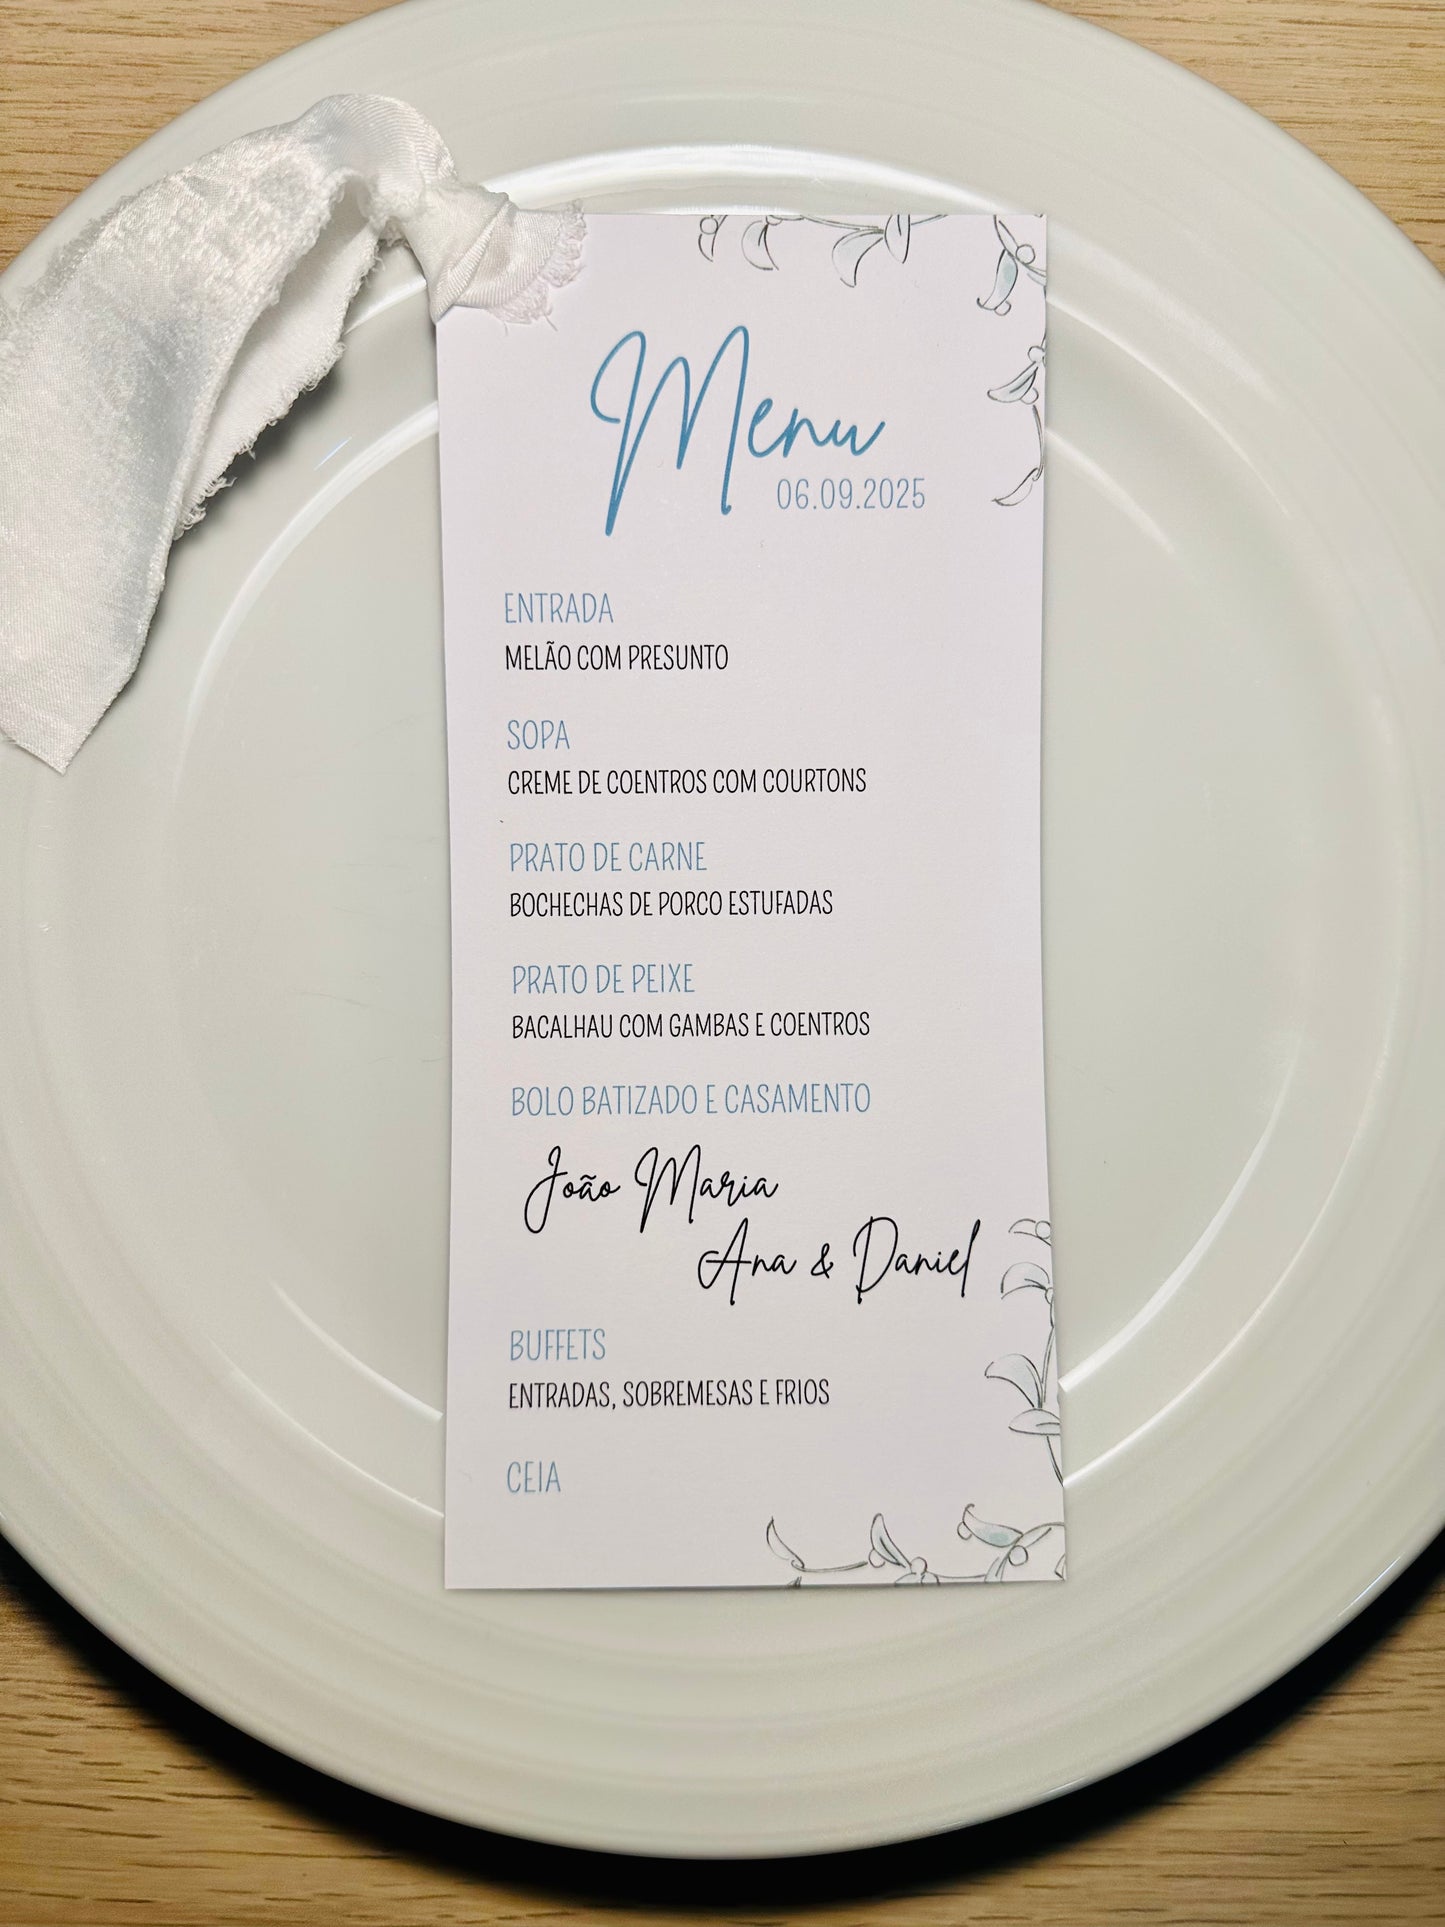 Menu
06.09.2025
ENTRADA
MELÃO COM PRESUNTO
SOPA
CREME DE COENTROS COM COURTONS
PRATO DE CARNE
BOCHECHAS DE PORCO ESTUFADAS
PRATO DE PEIXE
BACALHAU COM GAMBAS E COENTROS
BOLO BATIZADO E CASAMENTO
João Maria
Ana & Daniel
BUFFETS
ENTRADAS, SOBREMESAS E FRIOS
CEIA